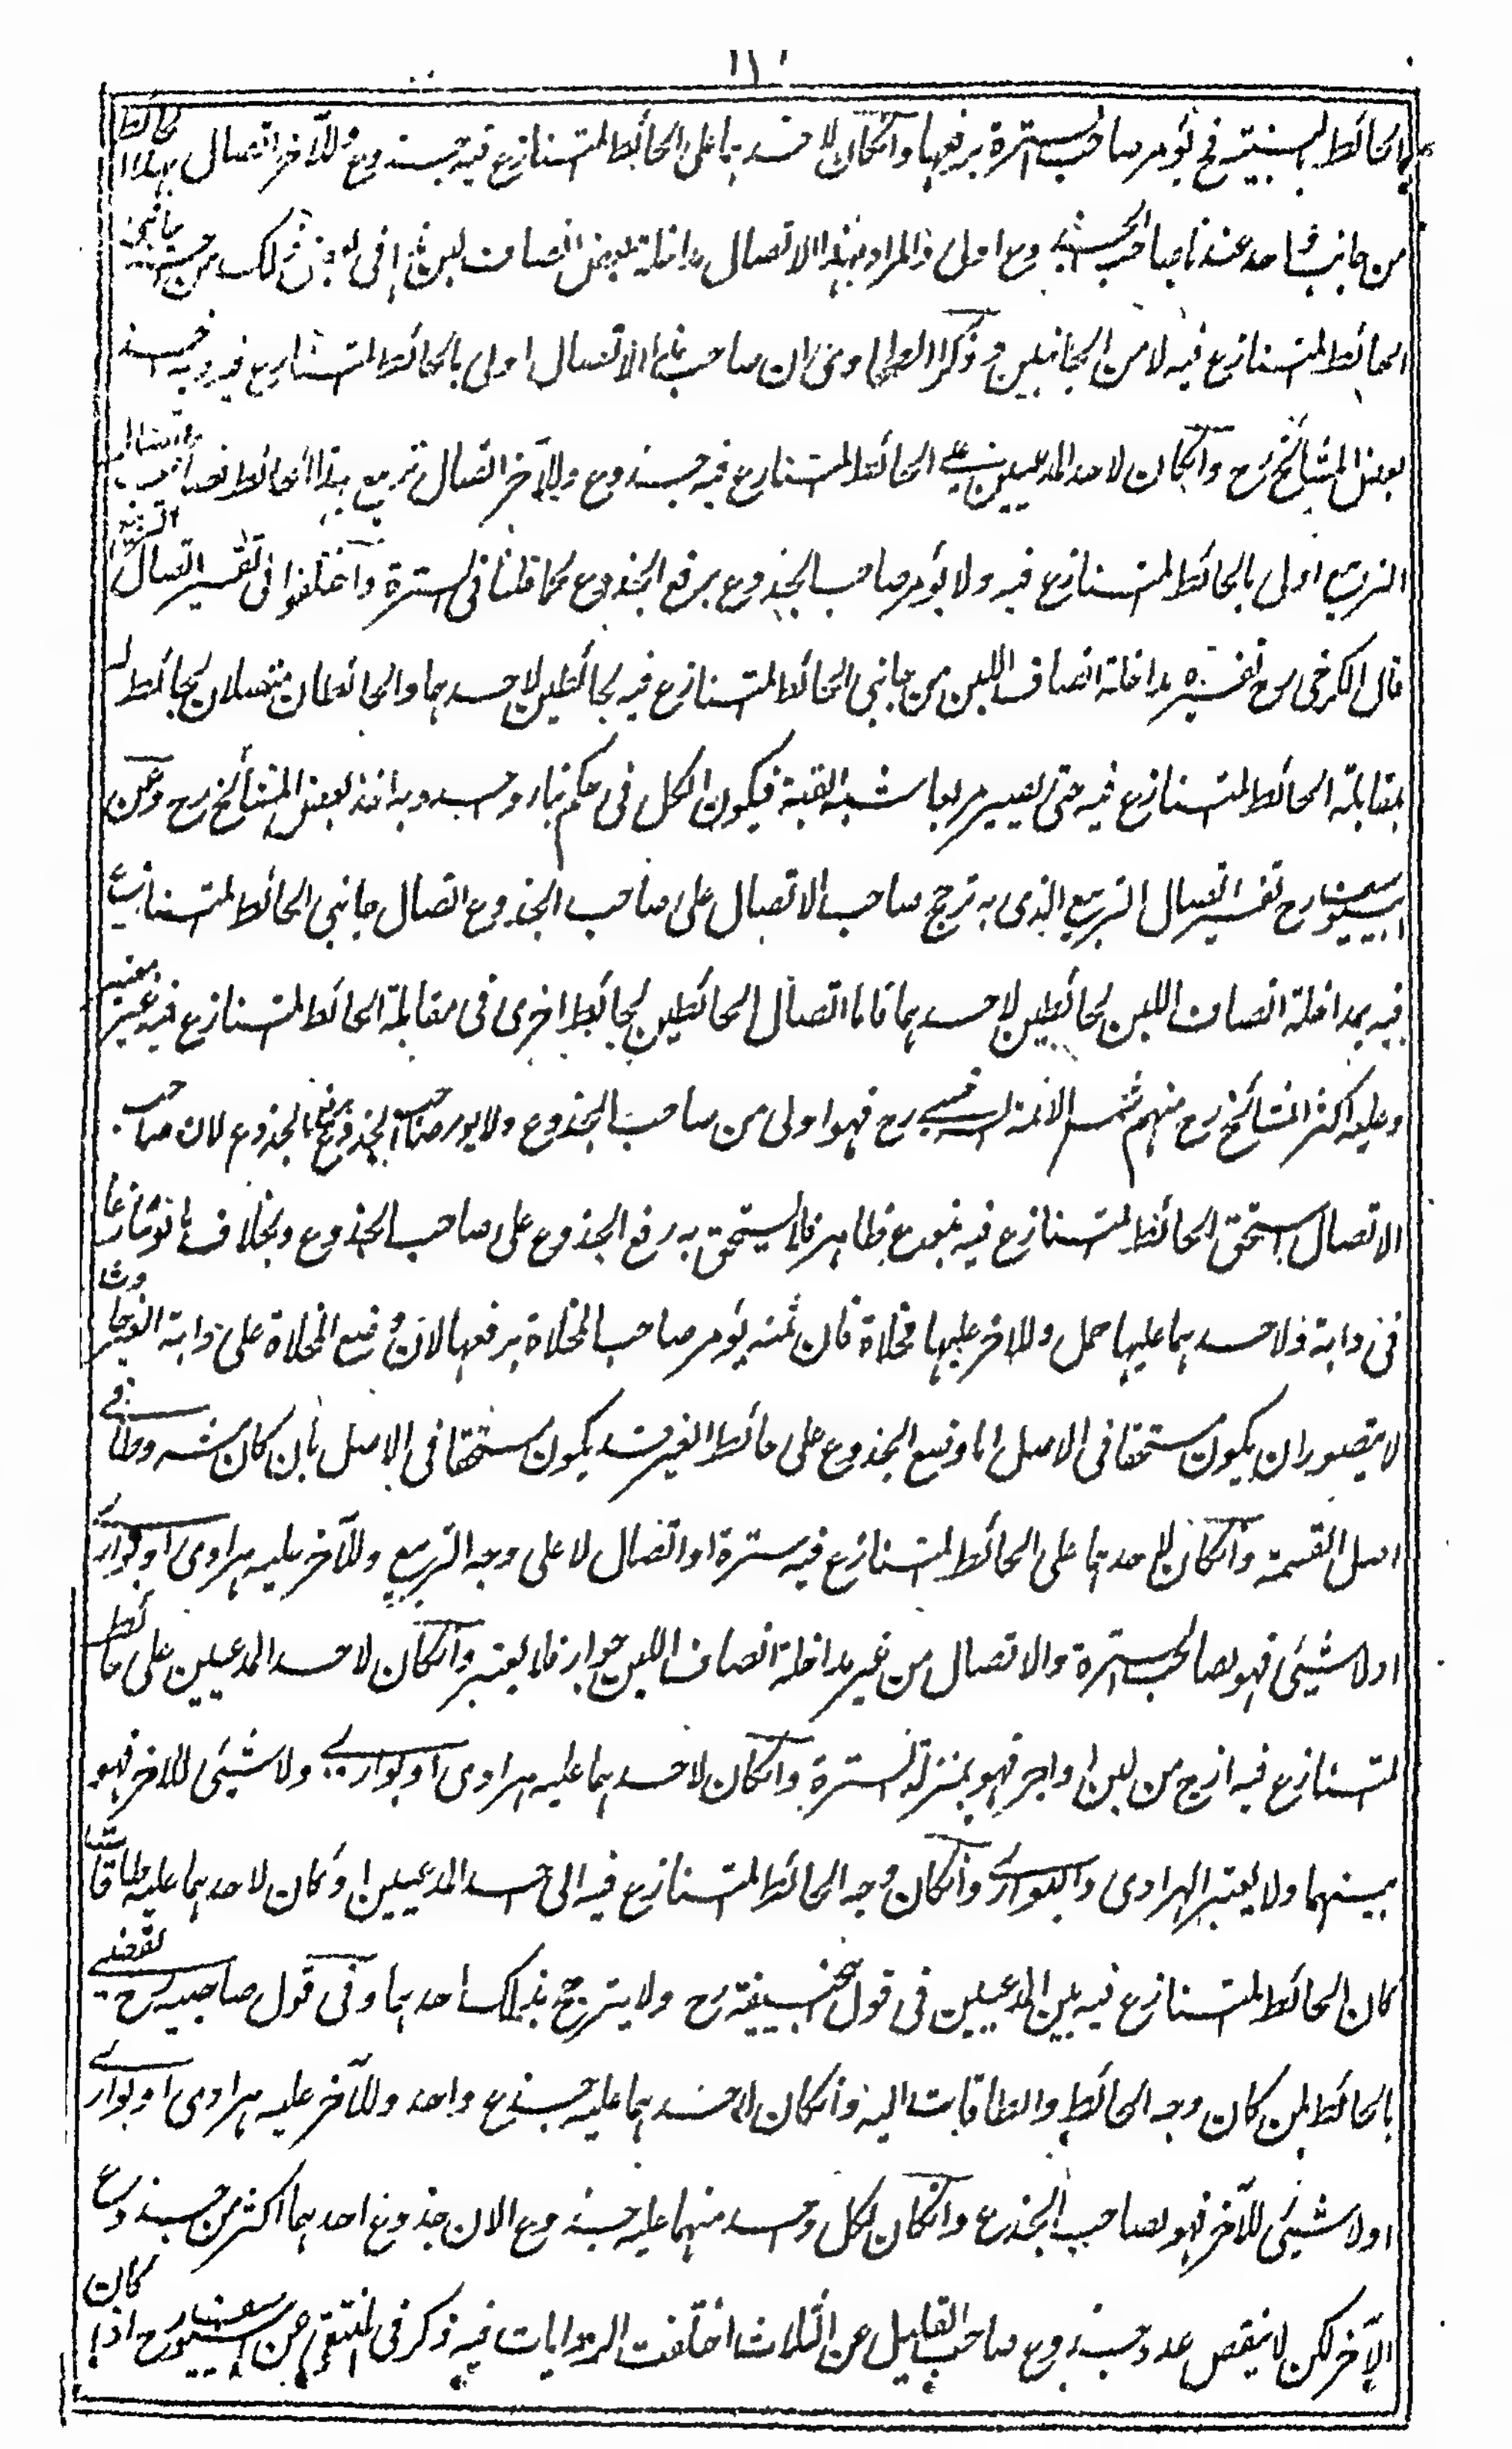 الحائط بالبينة فح يؤمر صاحب السترة برفعها وانكان لاحدهما على الحائط المتنازع فيه جذوع وللآخر اتصال بهذا الحائط
من جانب واحد عندنا صاحب الجذوع اولى والمراد بهذا الاتصال مداخلة بعض انصاف لبن في لبن ذلك من جانبي
الحائط المتنازع فيه لا من الجانبين وذكر الطحاوى ان صاحب هذا الاتصال اولى بالحائط المتنازع فيه وبه اخذ
بعض المشائخ رح وانكان لاحد المدعيين على الحائط المتنازع فيه جذوع وللآخر اتصال تربيع بهذا الحائط فصاحب اتصال
التربيع اولى بالحائط المتنازع فيه ولا يؤمر صاحب الجذوع برفع الجذوع كما قلنا فى السترة واختلفوا فى تفسير اتصال التربيع
قال الكرخى رح تفسيره مداخلة انصاف اللبن من جانبى الحائط المتنازع فيه بحائطين لاحدهما والحائطان متصلان بحائط له
بمقابلة الحائط المتنازع فيه حتى يصير مربعا شبه القبة فيكون الكل فى حكم بناء واحد وبه اخذ بعض المشائخ رح وعن
ابييوسف رح تفسير اتصال التربيع الذى به ترجح صاحب الاتصال على صاحب الجذوع اتصال جانبى الحائط المتنازع
فيه بمداخلة انصاف اللبن بحائطين لاحدهما فاما اتصال الحائطين بحائط اخرى فى مقابلة الحائط المتنازع فيه غير معتبر
وعليه اكثر المشائخ رح منهم شمس الائمة السرخسى رح فهو اولى من صاحب الجذوع ولا يومر صاحب الجذوع برفع الجذوع لان صاحب
الاتصال استحق الحائط المتنازع فيه بنوع ظاهر فلا يستحق به رفع الجذوع على صاحب الجذوع وبخلاف ما لو تنازعا
فى دابة ولاحدهما عليها حمل وللاخر عليها مخلاة فان ثمه يؤمر صاحب المخلاة برفعها لان وضع المخلاة على دابة الغير
لا يتصور ان يكون مستحقا فى الاصل اما وضع الجذوع على حائط الغير قد يكون مستحقا فى الاصل بان كان مشروطا فى
اصل القسمة وانكان لاحدهما على الحائط المتنازع فيه سترة او اتصال لا على وجه التربيع وللآخر عليه هرادى او بوارى
اولا شيئى فهو لصاحب السترة والاتصال من غير مداخلة انصاف اللبن جوار فلا يعتبر وانكان لاحد المدعيين على حائط
المتنازع فيه ازج من لبن او اجر فهو بمنزلة السترة وانكان لاحدهما عليه هرادى او بوارى ولا شيئى للاخر فهو
بينهما ولا يعتبر الهرادى والبوارى وانكان وجه الحائط المتنازع فيه الى احد المدعيين او كان لاحدهما عليه طاقات
كان الحائط المتنازع فيه بين المدعيين فى قول ابيحنيفة رح ولا يترجح بذلك احدهما وفى قول صاحبيه رح يقضى
بالحائط لمن كان وجه الحائط والطاقات اليه وانكان لاحدهما عليه جذع واحد وللآخر عليه هرادى او بوارى
اولا شيئى للآخر فهو لصاحب الجذع وانكان لكل واحد منهما عليه جذوع الا ان جذوع احدهما اكثر من جذوع
الآخر لكن لا ينقص عدد جذوع صاحب القليل عن الثلاث اختلفت الروايات فيه ذكر فى المنتقى عن ابييوسف رح اذا كان